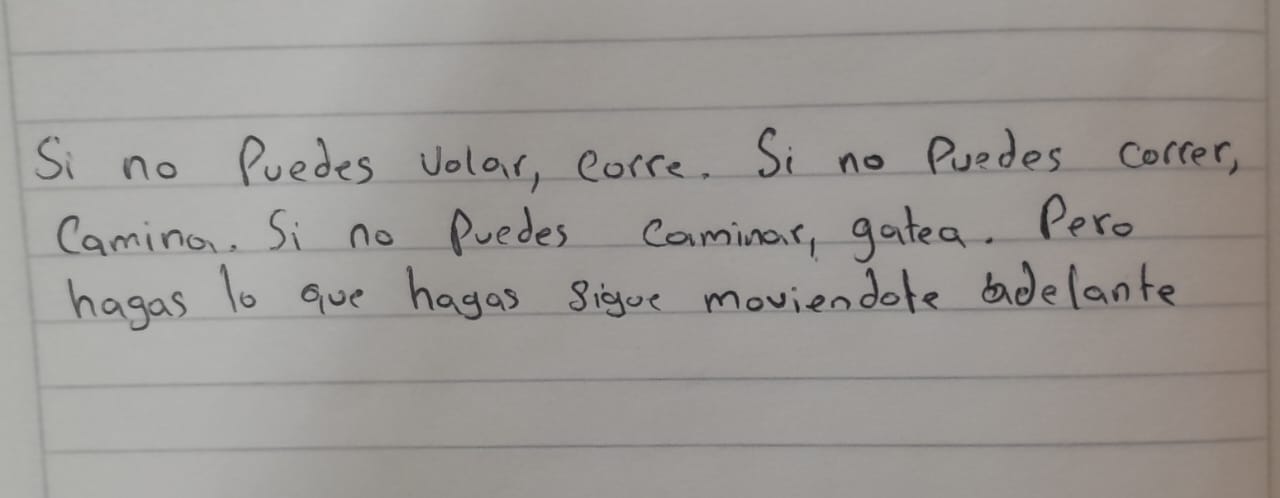 Si no Puedes volar, corre. Si no Puedes correr,
Camina. Si no Puedes caminar, gatea. Pero
hagas lo que hagas sigue moviendote adelante